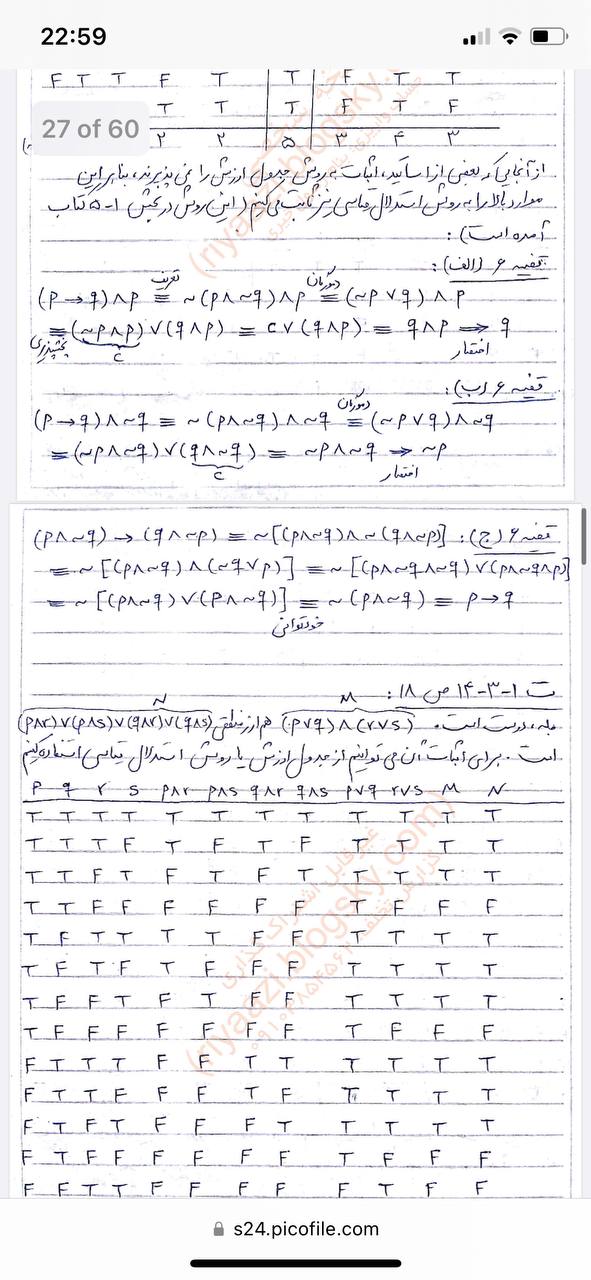 22:59
F T T F T T F T T
T T T F T F
27 of 60
۲ ۲ ۵ ۳ ۴ ۳
از آنجایی که بعضی از اساتید، اثبات به روش جدول ارزش را نمی پذیرند، بنابراین
موارد بالا را به روش استدلال ریاضی نیز ثابت می کنیم (این روش در بخش ۱-۵ کتاب
آمده است):
قضیه ۶ (الف):
تعریف دمورگان
(p → q) ∧ p ≡ ~(p ∧ ~q) ∧ p ≡ (~p ∨ q) ∧ p
≡ (~p ∧ p) ∨ (q ∧ p) ≡ c ∨ (q ∧ p) ≡ q ∧ p ⇒ q
پخشپذیری c اختصار
قضیه ۶ (ب):
دمورگان
(p → q) ∧ ~q ≡ ~(p ∧ ~q) ∧ ~q ≡ (~p ∨ q) ∧ ~q
≡ (~p ∧ ~q) ∨ (q ∧ ~q) ≡ ~p ∧ ~q ⇒ ~p
c اختصار
قضیه ۶ (ج): (p ∧ ~q) → (q ∧ ~p) ≡ ~[(p ∧ ~q) ∧ ~(q ∧ ~p)]
≡ ~[(p ∧ ~q) ∧ (~q ∨ p)] ≡ ~[(p ∧ ~q ∧ ~q) ∨ (p ∧ ~q ∧ p)]
≡ ~[(p ∧ ~q) ∨ (p ∧ ~q)] ≡ ~(p ∧ ~q) ≡ p → q
خودتوانی
ت ۱-۳-۱۴ ص ۱۸:
N M
بله، درست است. (p ∨ q) ∧ (r ∨ s) هم ارز منطقی (p ∧ r) ∨ (p ∧ s) ∨ (q ∧ r) ∨ (q ∧ s)
است. برای اثبات آن می توانیم از جدول ارزش یا روش استدلال قیاسی استفاده کنیم
p q r s p∧r p∧s q∧r q∧s p∨q r∨s M N
T T T T T T T T T T T T
T T T F T F T F T T T T
T T F T F T F T T T T T
T T F F F F F F T F F F
T F T T T T F F T T T T
T F T F T F F F T T T T
T F F T F T F F T T T T
T F F F F F F F T F F F
F T T T F F T T T T T T
F T T F F F T F T T T T
F T F T F F F T T T T T
F T F F F F F F T F F F
F F T T F F F F F T F F
(riyaazi.blogsky.com)
غیرقابل اشتراک گذاری
s24.picofile.com